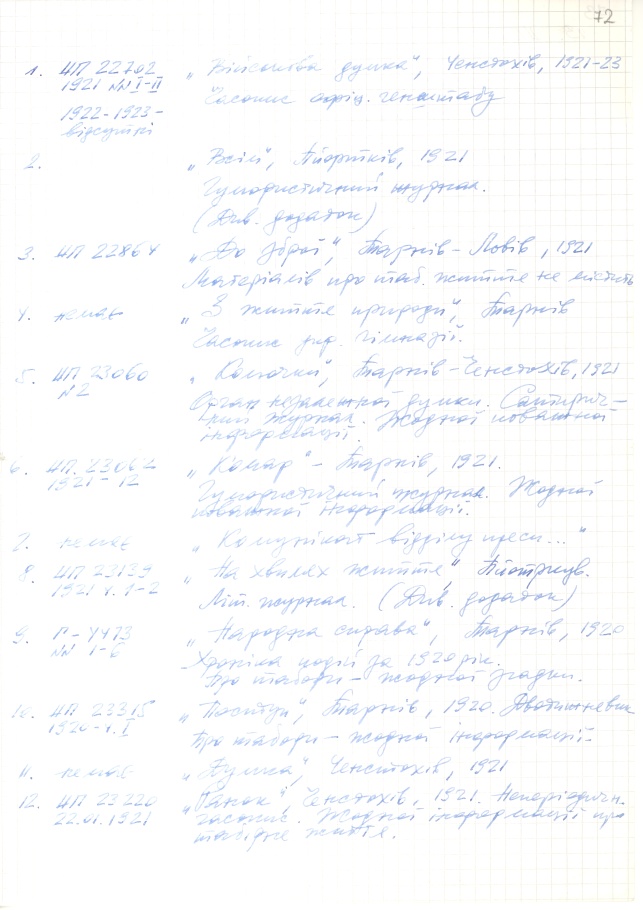 72
1. ЧП 22702 „Військова думка", Ченстохів, 1921-23
1921 №№ I-II Часопис офіц. генштабу
1922-1923-
відсутні
2. „Всім", Пйотрків, 1921
Гумористичний журнал.
(Див. додаток)
3. ЧП 22864 „До зброї", Тарнів-Львів, 1921
Матеріалів про таб. життє не містить
4. немає „З життє природи", Тарнів
Часопис укр. гімназії.
5. ЧП 23060 „Колючки", Тарнів-Ченстохів, 1921
№2 Орган незалежної думки. Сатирич-
ний журнал. Жодної поважної
інформації.
6. ЧП 23062 „Комар" - Тарнів, 1921.
1921- 12 Гумористичний журнал. Жодної
поважної інформації.
7. немає „Комунікат відділу преси..."
8. ЧП 23139 „На хвилях життє", Пйотркув.
1921 ч. 1-2 Літ. журнал. (Див. додаток)
9. П-4473 „Народна справа", Тарнів, 1920
№№ 1-6 Хроніка подій за 1920 рік.
Про табори - жодної згадки.
10. ЧП 23315 „Поступ", Тарнів, 1920. Двотижневик
1920-ч. I Про табори - жодної інформації.
11. немає „Думка", Ченстохів, 1921
12. ЧП 23220 „Ранок", Ченстохів, 1921. Неперіодичн.
22.01.1921 часопис. Жодної інформації про
табірне життє.